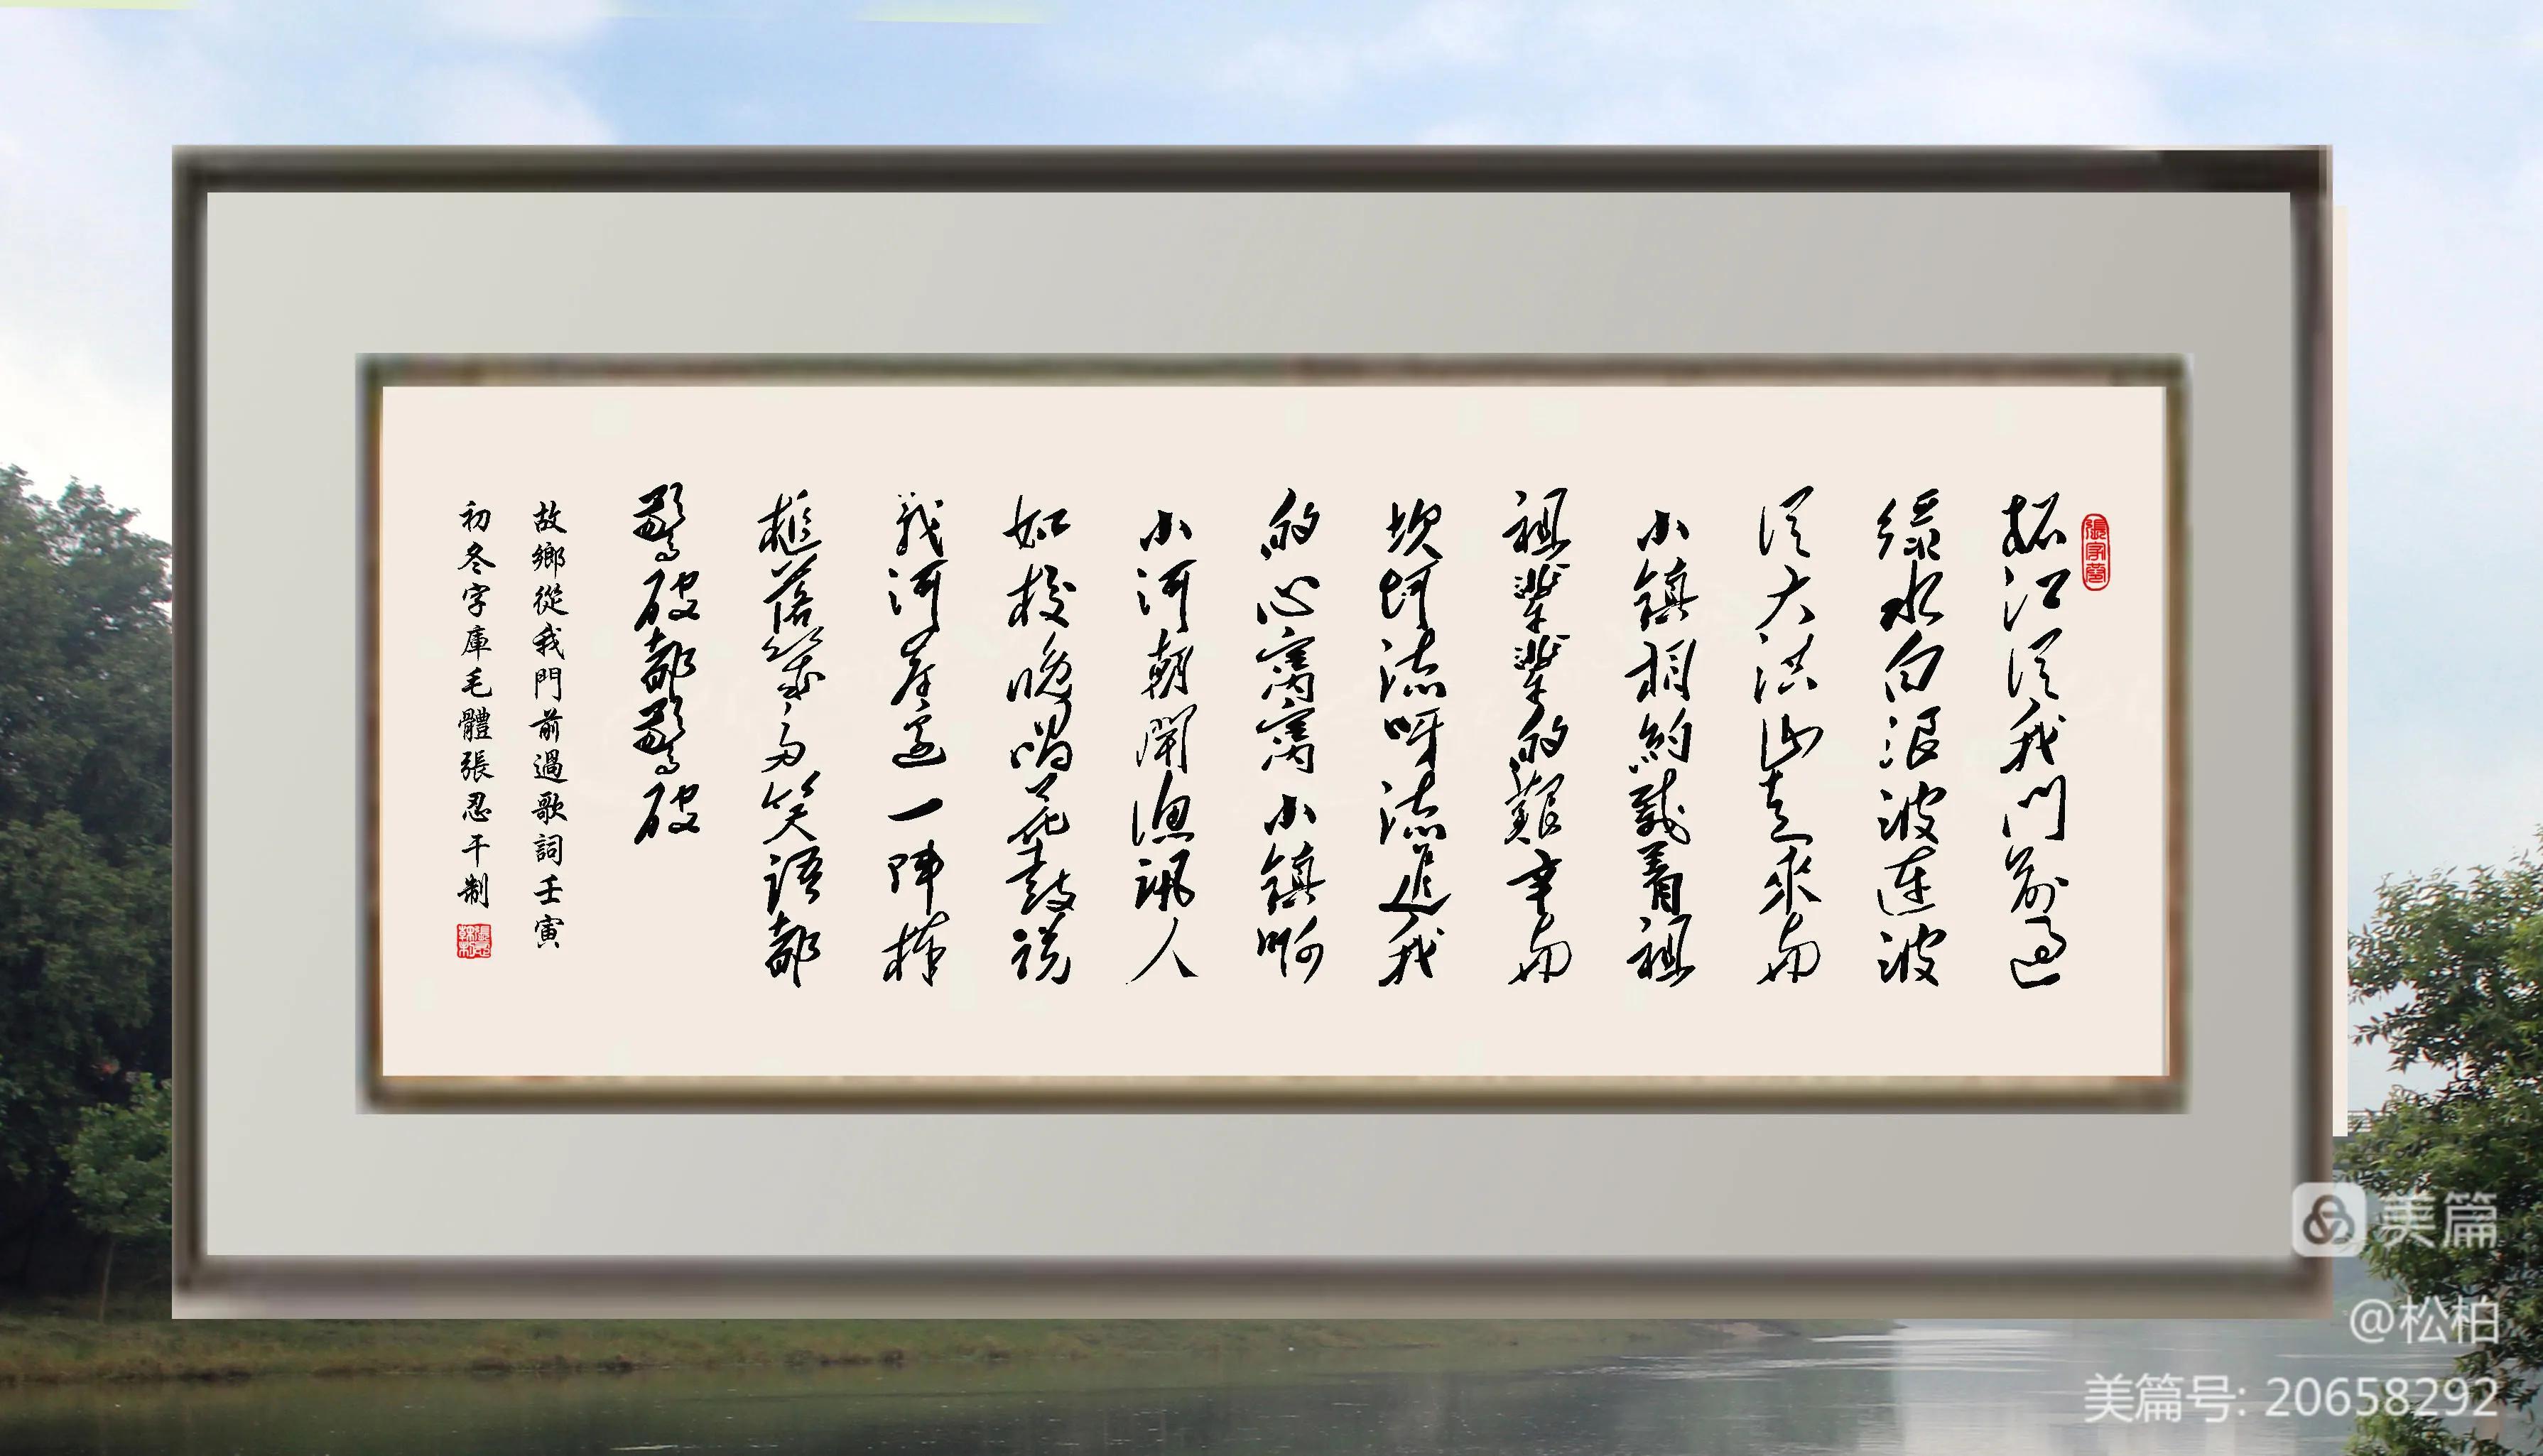 拓江從我門前過
綠水白浪波連波
從大洪山走來
小鎮相約載着祖
祖輩輩的艱辛
坎坷流呀流進我
的心窩窩小鎮啊
小河朝聞漁訊人
如梭晚唱花鼓說
河岸邊一陣棒
槌落笑語都
驚破都驚破
故鄉從我門前過歌詞壬寅
初冬字庫毛體張忍千制
美篇
@松柏
美篇号: 20658292